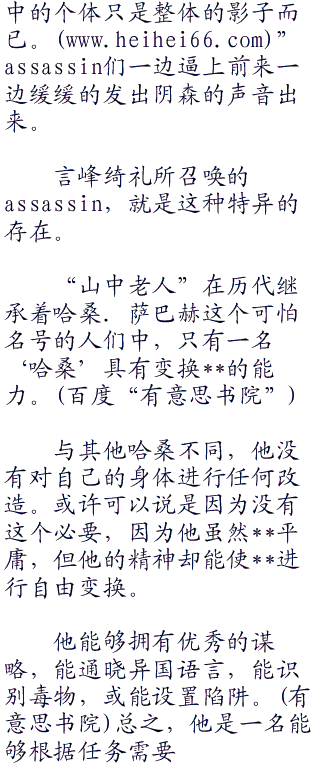 中的个体只是整体的影子而
已。(www.heihei66.com)”
assassin们一边逼上前来一
边缓缓的发出阴森的声音出
来。
言峰绮礼所召唤的
assassin，就是这种特异的
存在。
“山中老人”在历代继
承着哈桑．萨巴赫这个可怕
名号的人们中，只有一名
‘哈桑’具有变换**的能
力。(百度“有意思书院”)
与其他哈桑不同，他没
有对自己的身体进行任何改
造。或许可以说是因为没有
这个必要，因为他虽然**平
庸，但他的精神却能使**进
行自由变换。
他能够拥有优秀的谋
略，能通晓异国语言，能识
别毒物，或能设置陷阱。(有
意思书院)总之，他是一名能
够根据任务需要